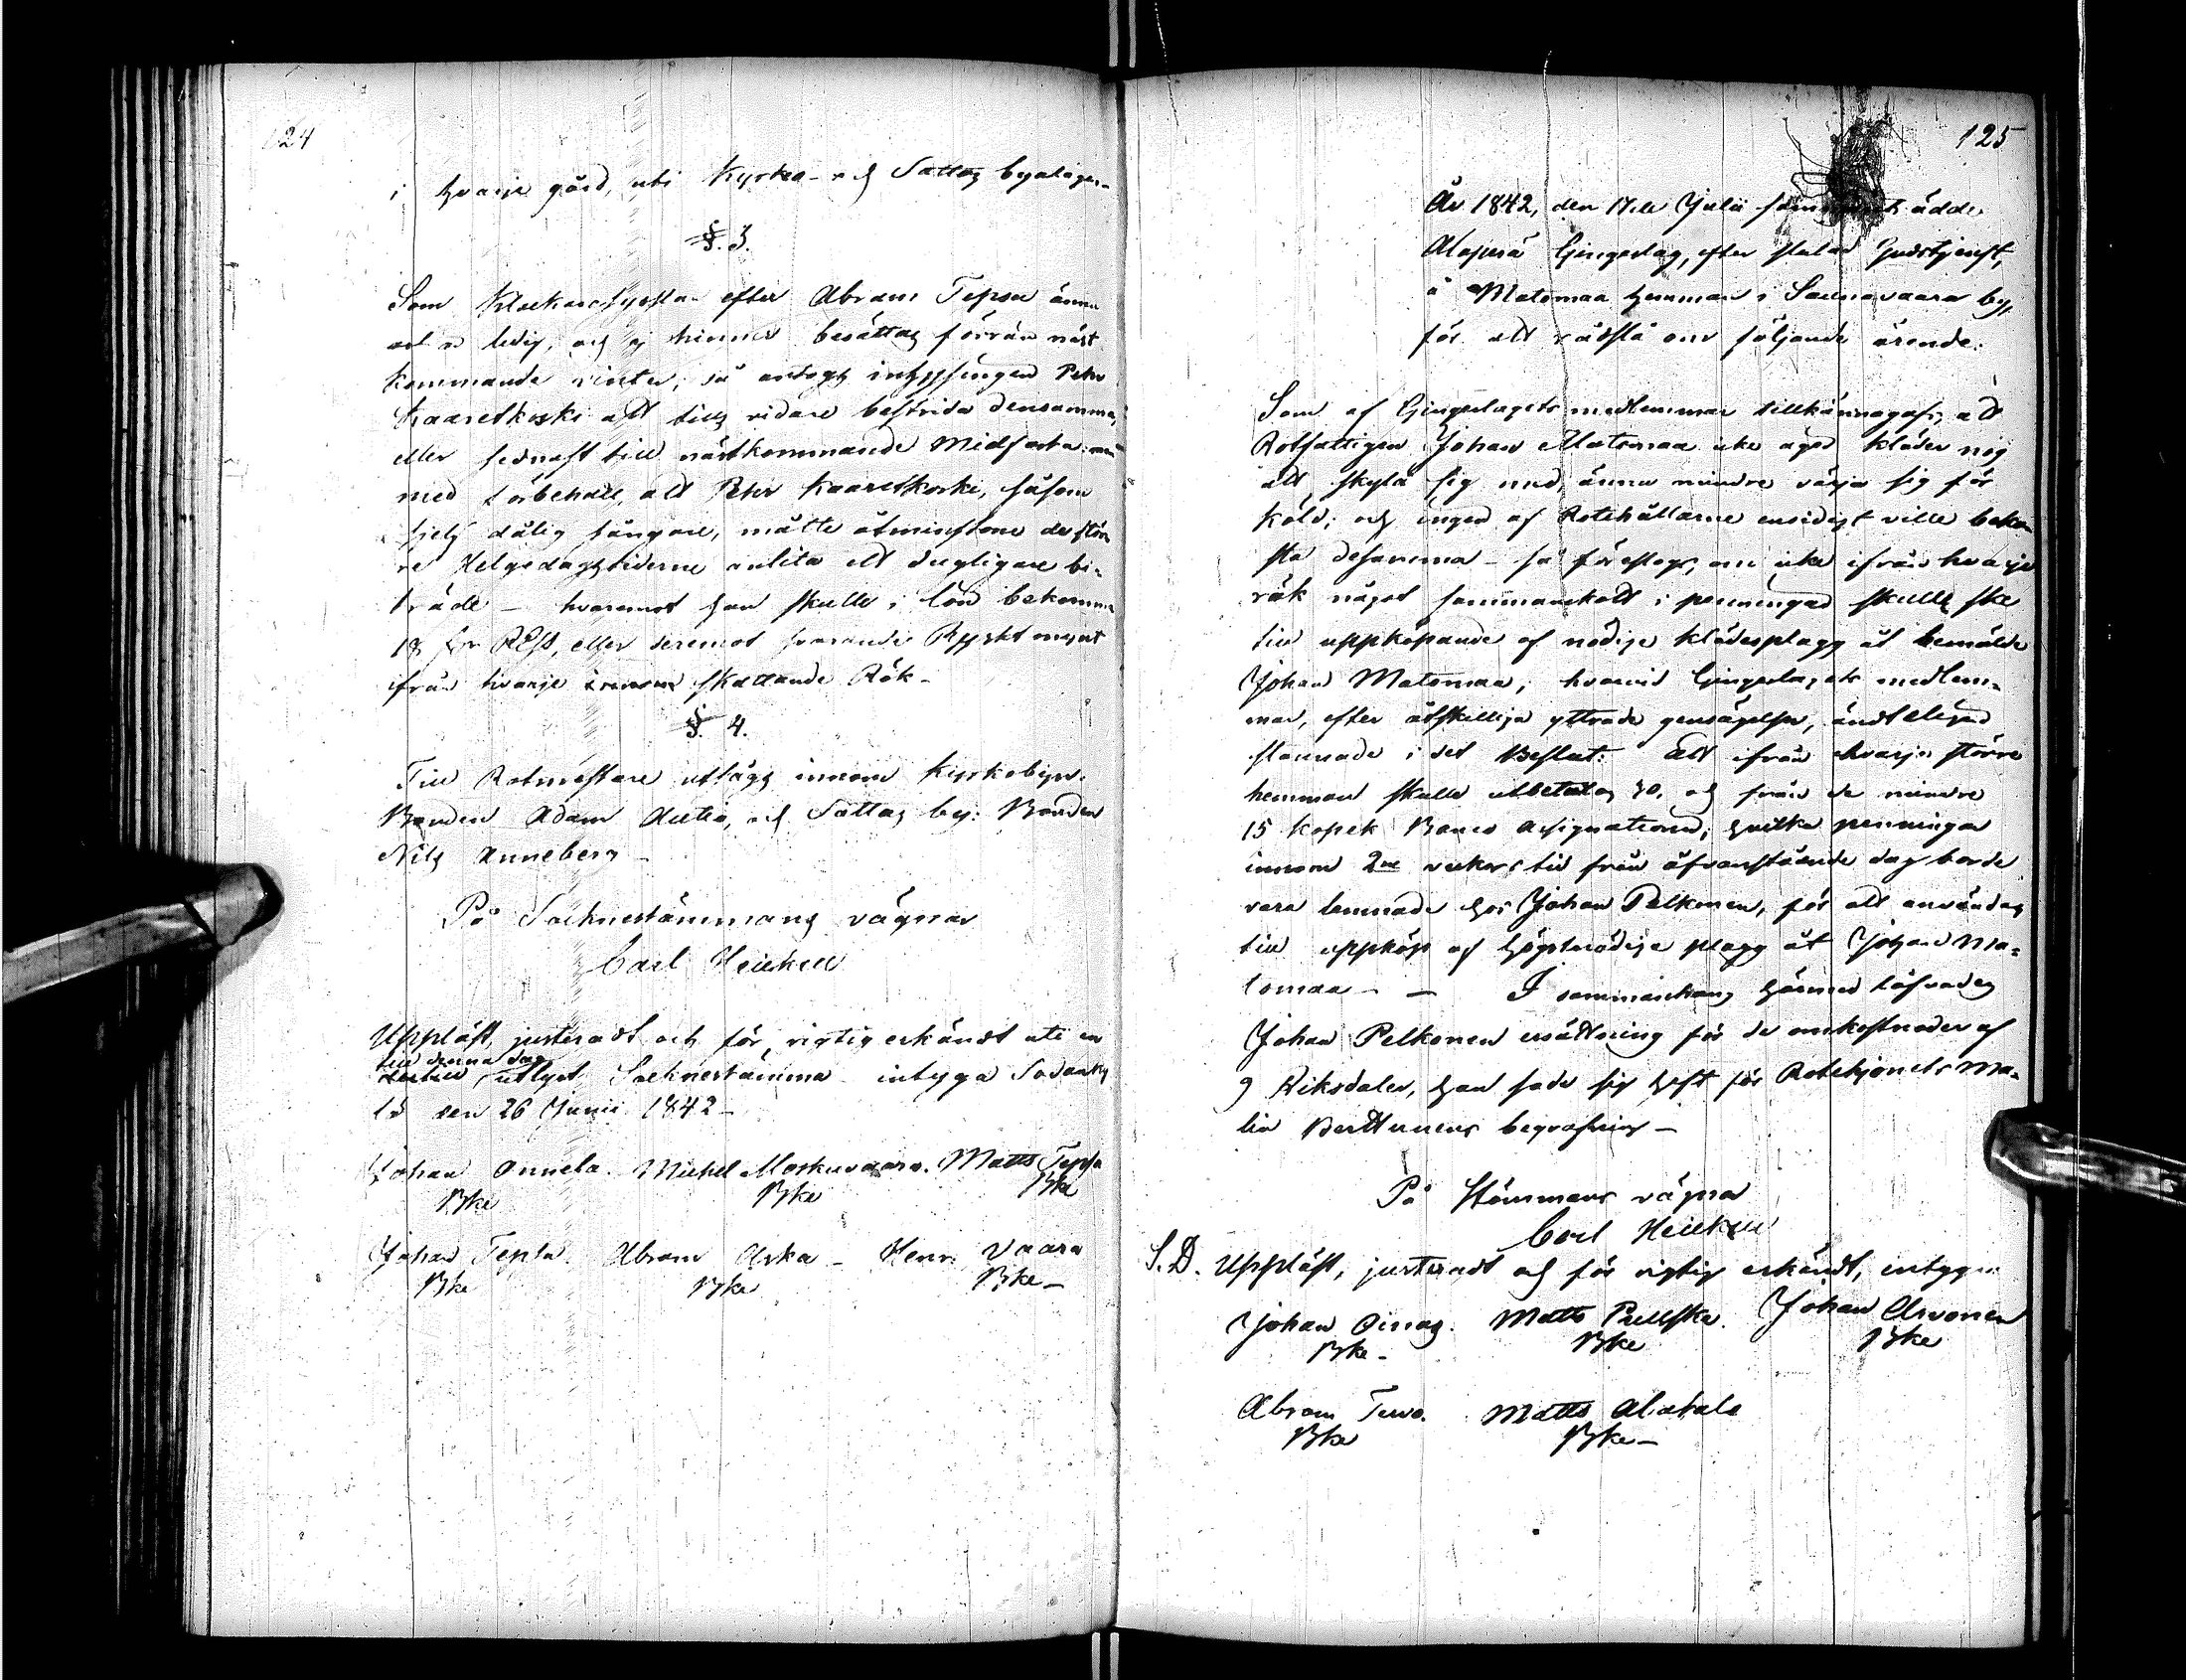 124
i hvarje gård, uti Kyrko- och Sattas byalager.
§. 3.
Som Klockaresysslan efter Abram Tepsa ännu
är ledig, och ej hinner besättas förrän näst
kommande vinter, så antogs inhysingen Petr
Kaaretkoski att tills vidare bestrida densamma,
eller sednast till nästkommande Midfasta:
med förbehåll, att Peter Kaaretkoski, såsom
sjelf dålig sångare, måtte åtminstone de stör
re Helgedagstiderne anlita ett dugligare bi-
träde – hvaremot han skulle i lön bekomma
18 RGs, eller deremot svarande Ryskt mynt
ifrån hvarje skattande Rök –
§. 4.
Till Rotmästare utsågs innom Kyrkobyn:
Bonden Adam Autio, och Sattas by: Bonden
Nils Anneberg –
På Socknestämmans vägnar
Carl Heickell
Uppläst, justeradt och för rigtig erkändt uti en
till denna dag
utlyst Socknestämma intyga Sodanky
lä den 26 Junii 1842 –
Johan Onnela. Michel Moskuvaara. Matts Tepsa
Bke Bke Bke
Johan Tepsa. Abram Arka – Henr. Vaara
Bke Bke Bke –
125
År 1842, den 17de Julii
Alaperä Gingerlag, efter slutad Gudstjenst,
å Matomaa hemman i Saunavaara by,
för att rådslå om följande ärende:
Som af Gingerlagets medlemmar tillkännagafs, att
Rotfattigen Johan Matomaa icke äger kläder nog
att skyla sig med, ännu mindre värja sig för
köld; och ingen af Rotehållarne ensidigt ville beko
sta desamma – så föreslogs, om icke ifrån hvarje
rök något sammanskott i penningar skulle ske
till uppköpande af nödige klädesplagg åt bemälde
Johan Matomaa; hvarvid Gingerlagets medlem-
mar, efter åtskilliga yttrade gensägelser, ändteligen
stannade i det Beslut: Att ifrån hvarje större
hemman skulle utbetalas 30, och från de mindre
15 kopek Banco Assignationer; hvilka penningar
innom 2ne veckors tid från ofvanstående dag borde
vara lemnade hos Johan Pelkonen, för att användas
till uppköp af högstnödige plagg åt Johan Ma-
tomaa – – I sammanhang härmed lofvades
Johan Pelkonen ersättning för de omkostnader af
9 Riksdaler, han sade sig haft för Rotehjonets Ma-
lin Berttunens begrafning –
På Stämmans vägnar
Carl Heickell
S. D. Uppläst, justeradt och för rigtig erkändt, intyga
Johan Oinas. Matts Pulska. Johan Arvonen
Bke – Bke Bke
Abram Tervo. Matts Alatalo
Bke Bke –